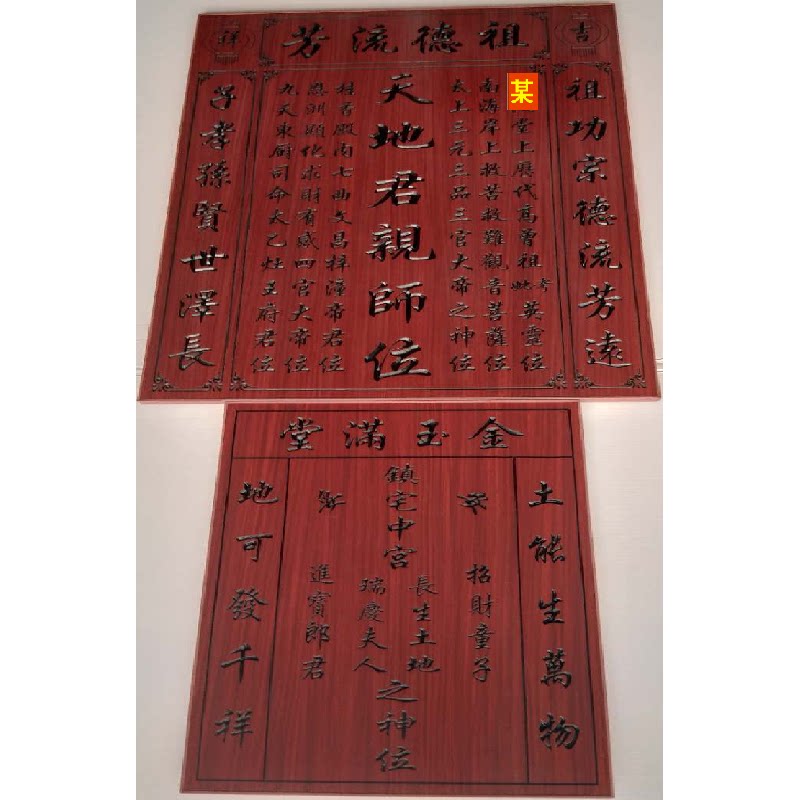 吉
祥
祖德流芳
祖功宗德流芳遠
某堂上歷代高曾祖考妣英靈位
南海岸上救苦救難觀音菩薩位
太上三元三品三官大帝之神位
天地君親師位
桂香殿內七曲文昌梓潼帝君位
顯化求財有感四官大帝位
九天東厨司命太乙灶王府君位
子孝孫賢世澤長
金玉滿堂
土能生萬物
招財童子
鎮宅中宮
長生土地
瑞慶夫人
之神位
進寶郎君
地可發千祥